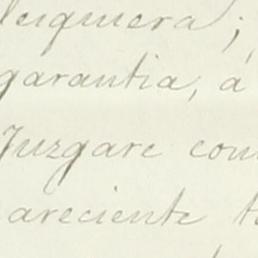 lesquiera;
garantia, á
Juzgare con
areciente t